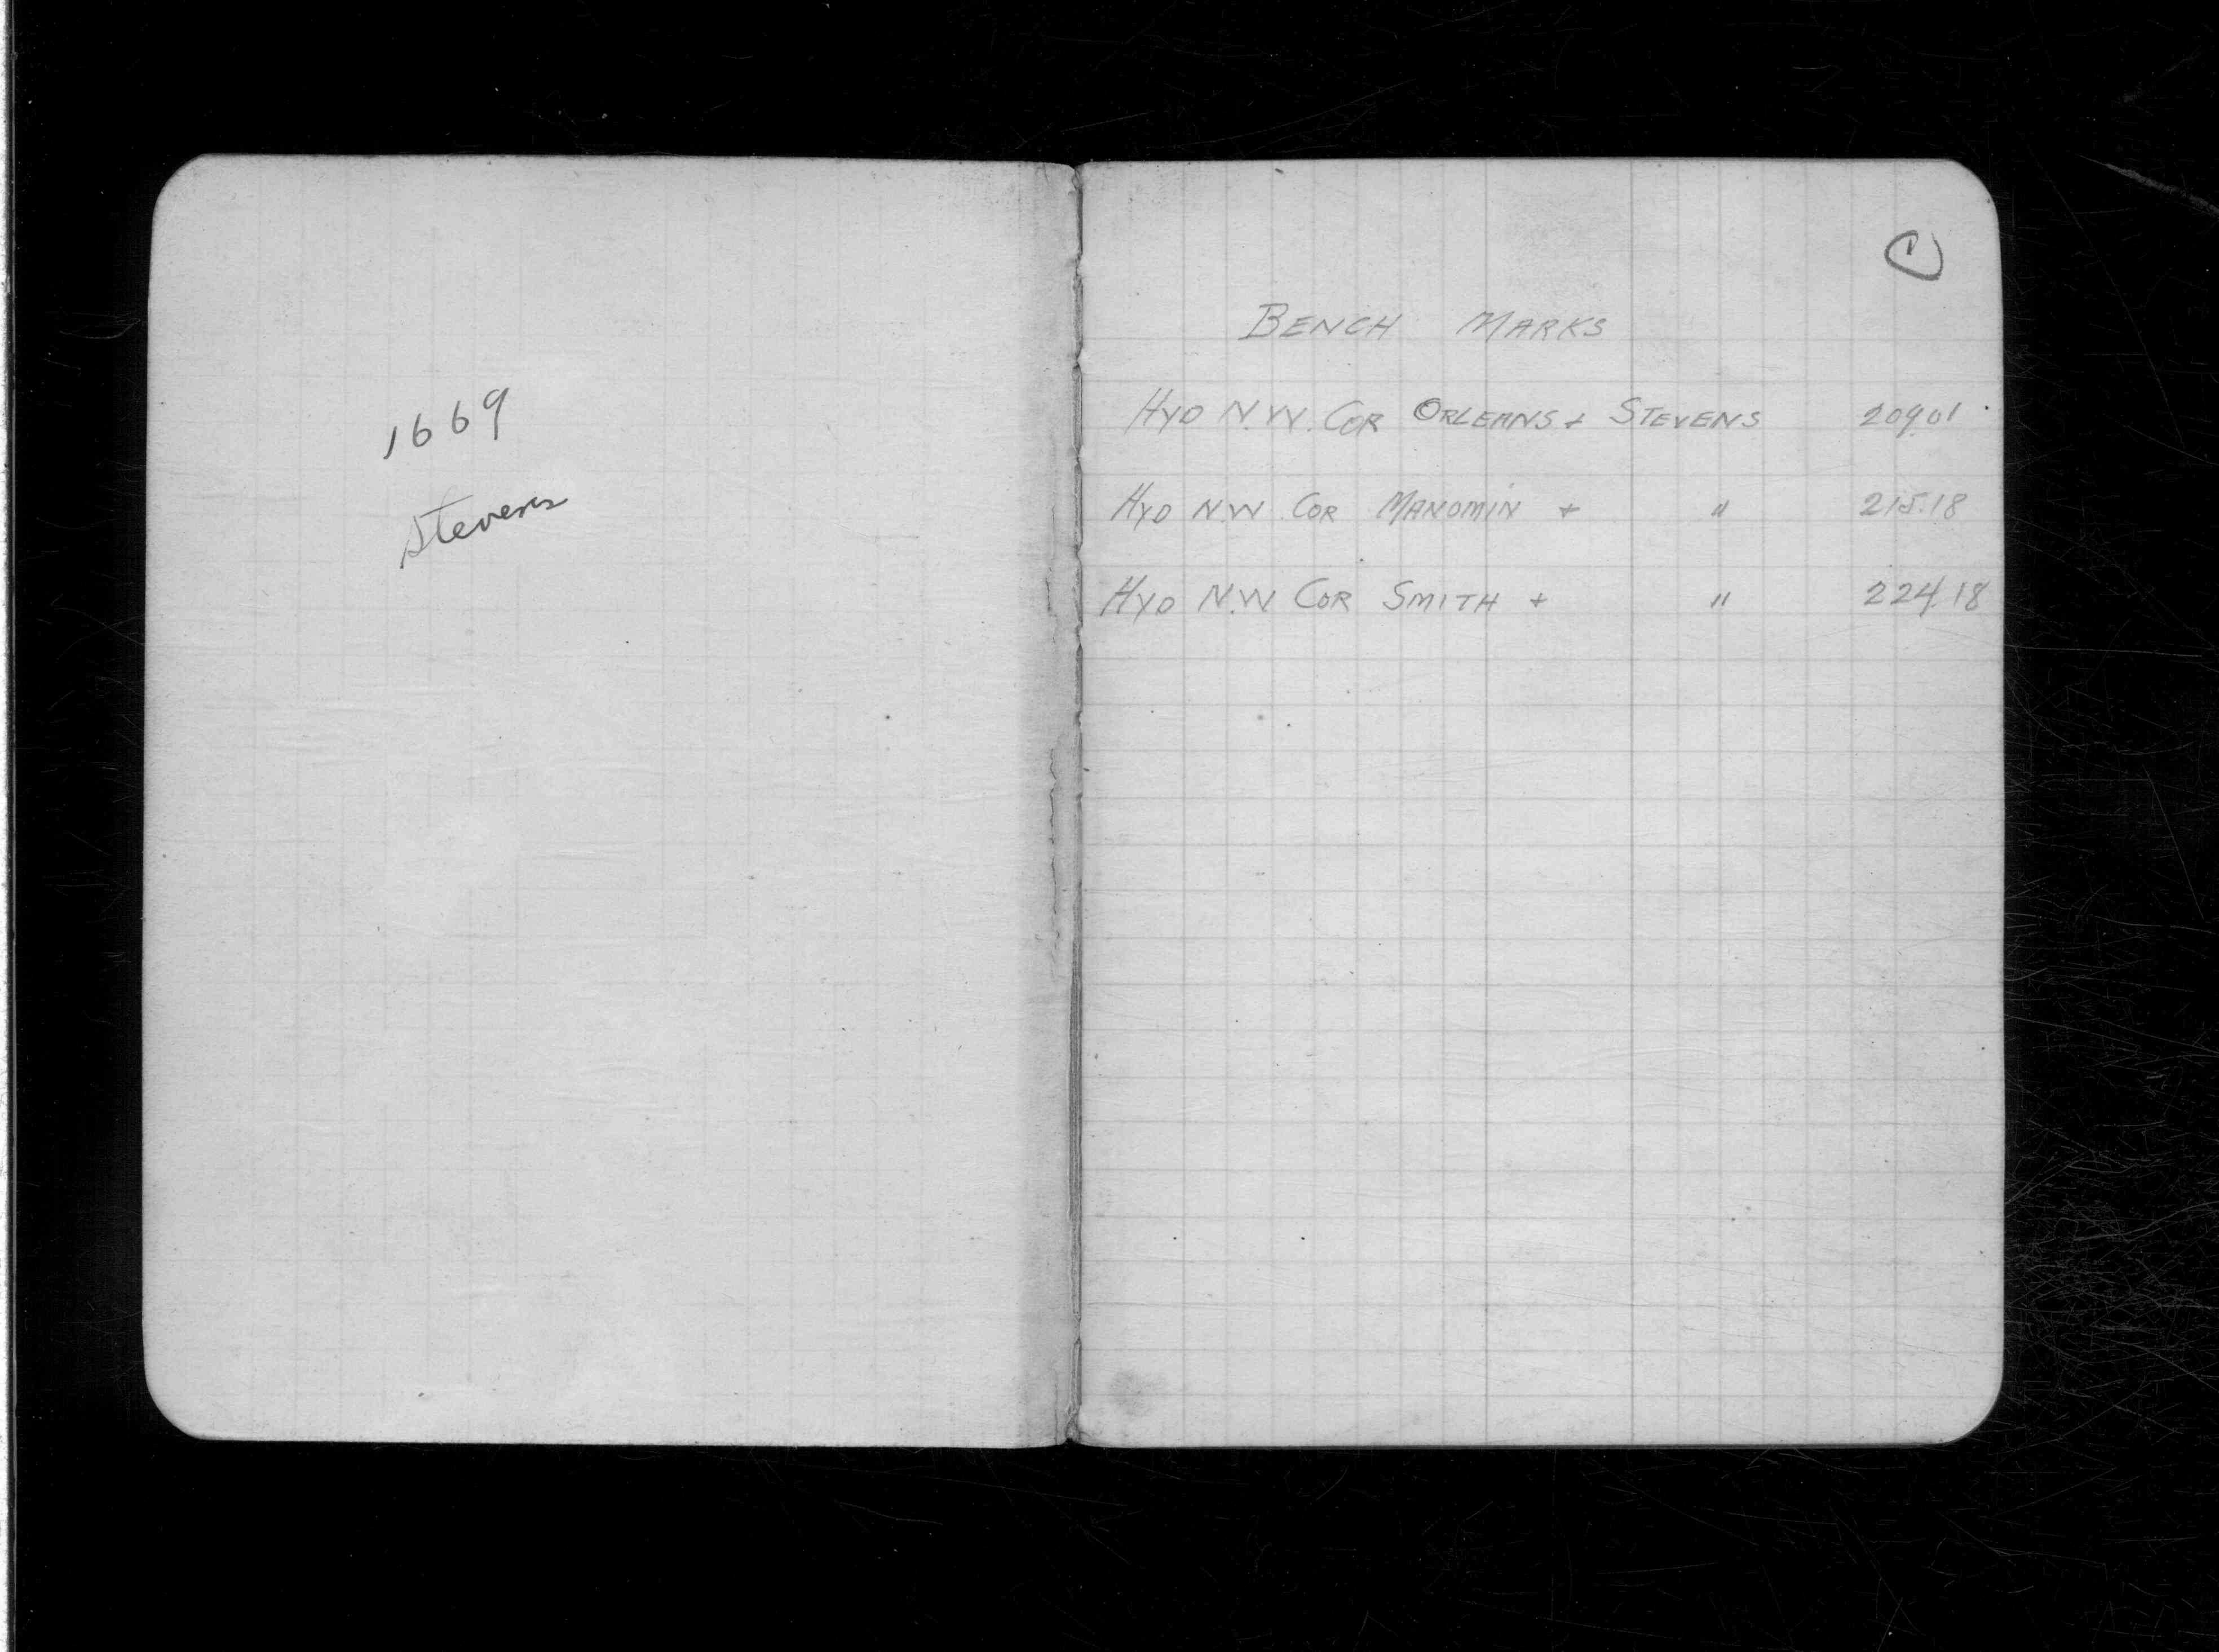 1669
Stevens
1
BENCH MARKS
HYD N.W. COR ORLEANS + STEVENS 209.01
HYD N.W. COR MANOMIN + " 215.18
HYD N.W. COR SMITH + " 224.18